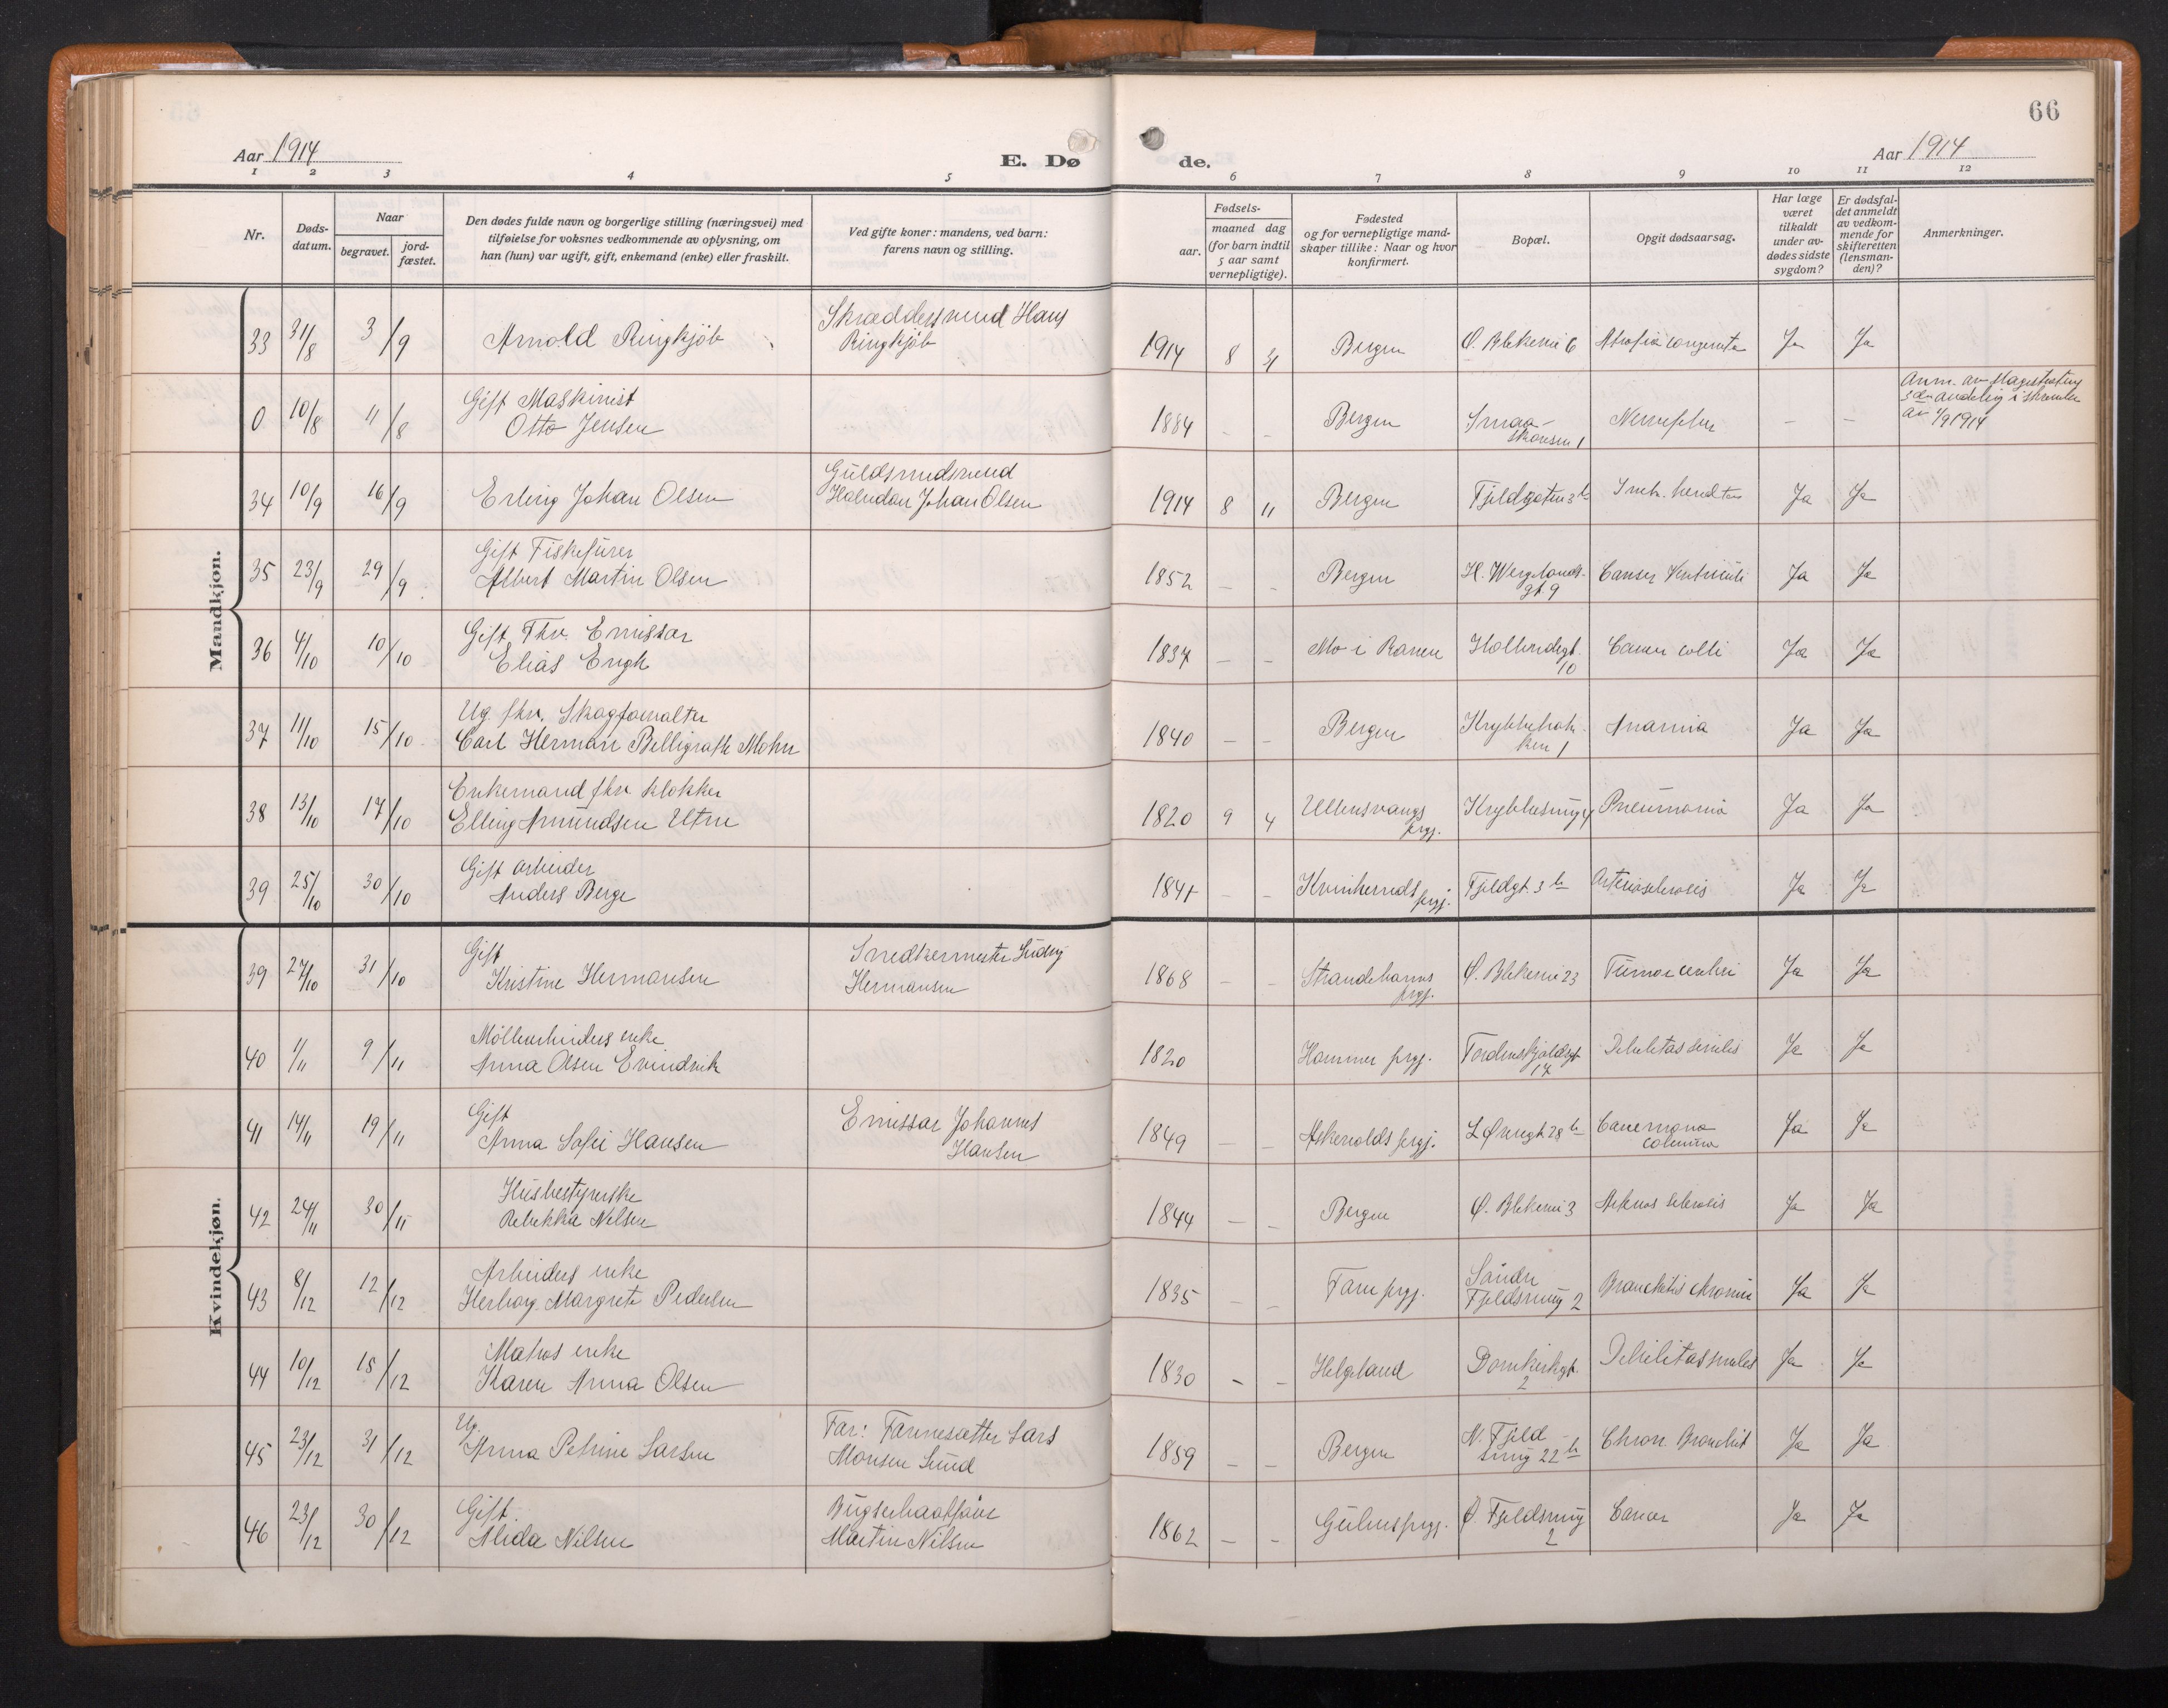 66
Aar 1914
E. Dø
de.
Aar 1914
1 2 3 4 5 6 7 8 9 10 11 12
Nr.
Døds-
datum.
Naar
begravet.
jord-
fæstet.
Den dødes fulde navn og borgerlige stilling (næringsvei) med
tilføielse for voksnes vedkommende av oplysning, om
han (hun) var ugift, gift, enkemand (enke) eller fraskilt.
Ved gifte koner: mandens, ved barn:
farens navn og stilling.
Fødsels-
aar.
maaned dag
(for barn indtil
5 aar samt
vernepligtige).
Fødested
og for vernepligtige mand-
skaper tillike: Naar og hvor
konfirmert.
Bopæl.
Opgit dødsaarsag.
Har læge
været
tilkaldt
under av-
dødes sidste
sygdom?
Er dødsfal-
det anmeldt
av vedkom-
mende for
skifteretten
(lensman-
den)?
Anmerkninger.
Mandkjøn.
33 31/8 3/9 Arnold Ringkjøb
Skræddersvend Hans
Ringkjøb
1914 8 31 Bergen Ø. Blekevei 6 Atrofia congenita Ja Ja
0 10/8 11/8 Gift Maskinist
Otto Jensen
1884 – – Bergen Smaa-
skansen 1
– –
Anm. av Magistratens
av 1/9 1914
34 10/9 16/9 Erling Johan Olsen
Guldsmedsvend
Halvdan Johan Olsen
1914 8 11 Bergen Fjeldgaten 3 b Ja Ja
35 23/9 29/9 Gift Fiskefører
Albert Martin Olsen
1852 – – Bergen H. Wergelands-
gt. 9
Cancer Ventriculi Ja Ja
36 4/10 10/10 Gift Fhv. Emissær
Elias Engh
1837 – – Mo i Ranen Hollendergt.
10
Cancer colli Ja Ja
37 11/10 15/10 Ug. fhv. Skogforvalter
Carl Herman Mohn
1840 – – Bergen Krybbebak-
ken 1
Anæmia Ja Ja
38 13/10 17/10 Enkemand fhv klokker
Elling Amundsen Utne
1820 9 4 Ullensvangs
prgj.
Krybbesmug 4 Pneumonia Ja Ja
39 25/10 30/10 Gift arbeider
Anders Berge
1841 – – Kvinherreds
prgj.
Fjeldgt. 3 b Arteriosclerosis Ja Ja
Kvindekjøn.
39 27/10 31/10 Gift
Kristine Hermansen
Snedkermester Ludvig
Hermansen
1868 – – Strandebarms
prgj.
Ø. Blekevei 23 Tumor cerebri Ja Ja
40 1/11 9/11 Møllearbeiders enke
Anna Olsen Evindvik
1820 Hammer prgj. Tordenskjoldsgt
17
Debilitas senilis Ja Ja
41 14/11 19/11 Gift
Anna Sofie Hansen
Emissær Johannes
Hansen
1849 – – Askevolds prgj. L. Øvregt 28 b Ja Ja
42 24/11 30/11 Husbestyrerske
Rebekka Nilsen
1844 – – Bergen Ø. Blekevei 3 Ja Ja
43 8/12 12/12 Arbeiders enke
Herborg Margrete Pedersen
1835 – – Fane prgj. Søndre
Fjeldsmug 2
Bronchitis chronica Ja Ja
44 10/12 15/12 Matros enke
Karen Anna Olsen
1830 – – Helgeland Domkirkegt.
2
Debilitas senilis Ja Ja
45 23/12 31/12 Ug.
Anna Petrine Larsen
Far: Lars
Monsen Sund
1859 – – Bergen N. Fjeld
smug 22 b
Chron. Bronchit Ja Ja
46 23/12 30/12 Gift.
Alida Nilsen
Bugserbaatfører
Martin Nilsen
1862 – – Gulens prgj. Ø. Fjeldsmug
2
Cancer Ja Ja